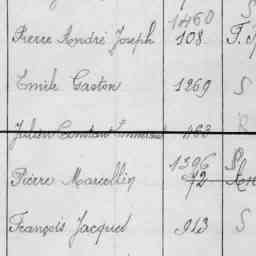 1460 S
Pierre André Joseph 108
Emile Gaston 1269 S
Julien Constant R
1396
Pierre Marcellin 72
François Jacques 913 S